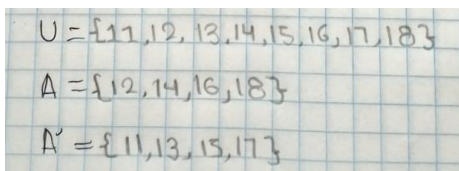 U = {11, 12, 13, 14, 15, 16, 17, 18}
A = {12, 14, 16, 18}
A' = {11, 13, 15, 17}